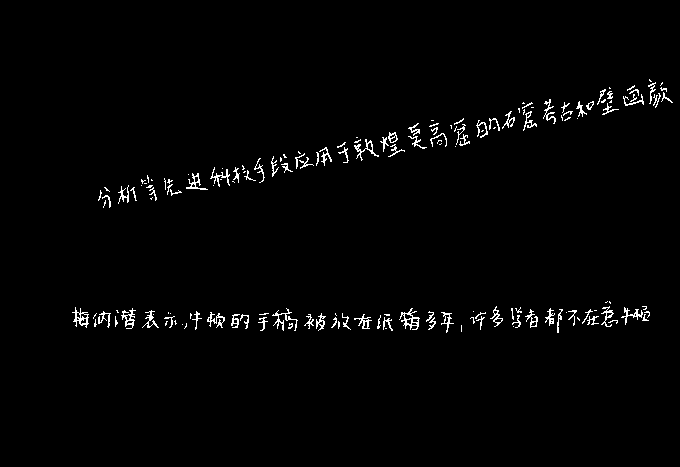 分析等先进科技手段应用于敦煌莫高窟的石窟考古和壁画颜
梅纳潜表示,牛顿的手稿被放在纸箱多年,许多学者都不在意牛顿